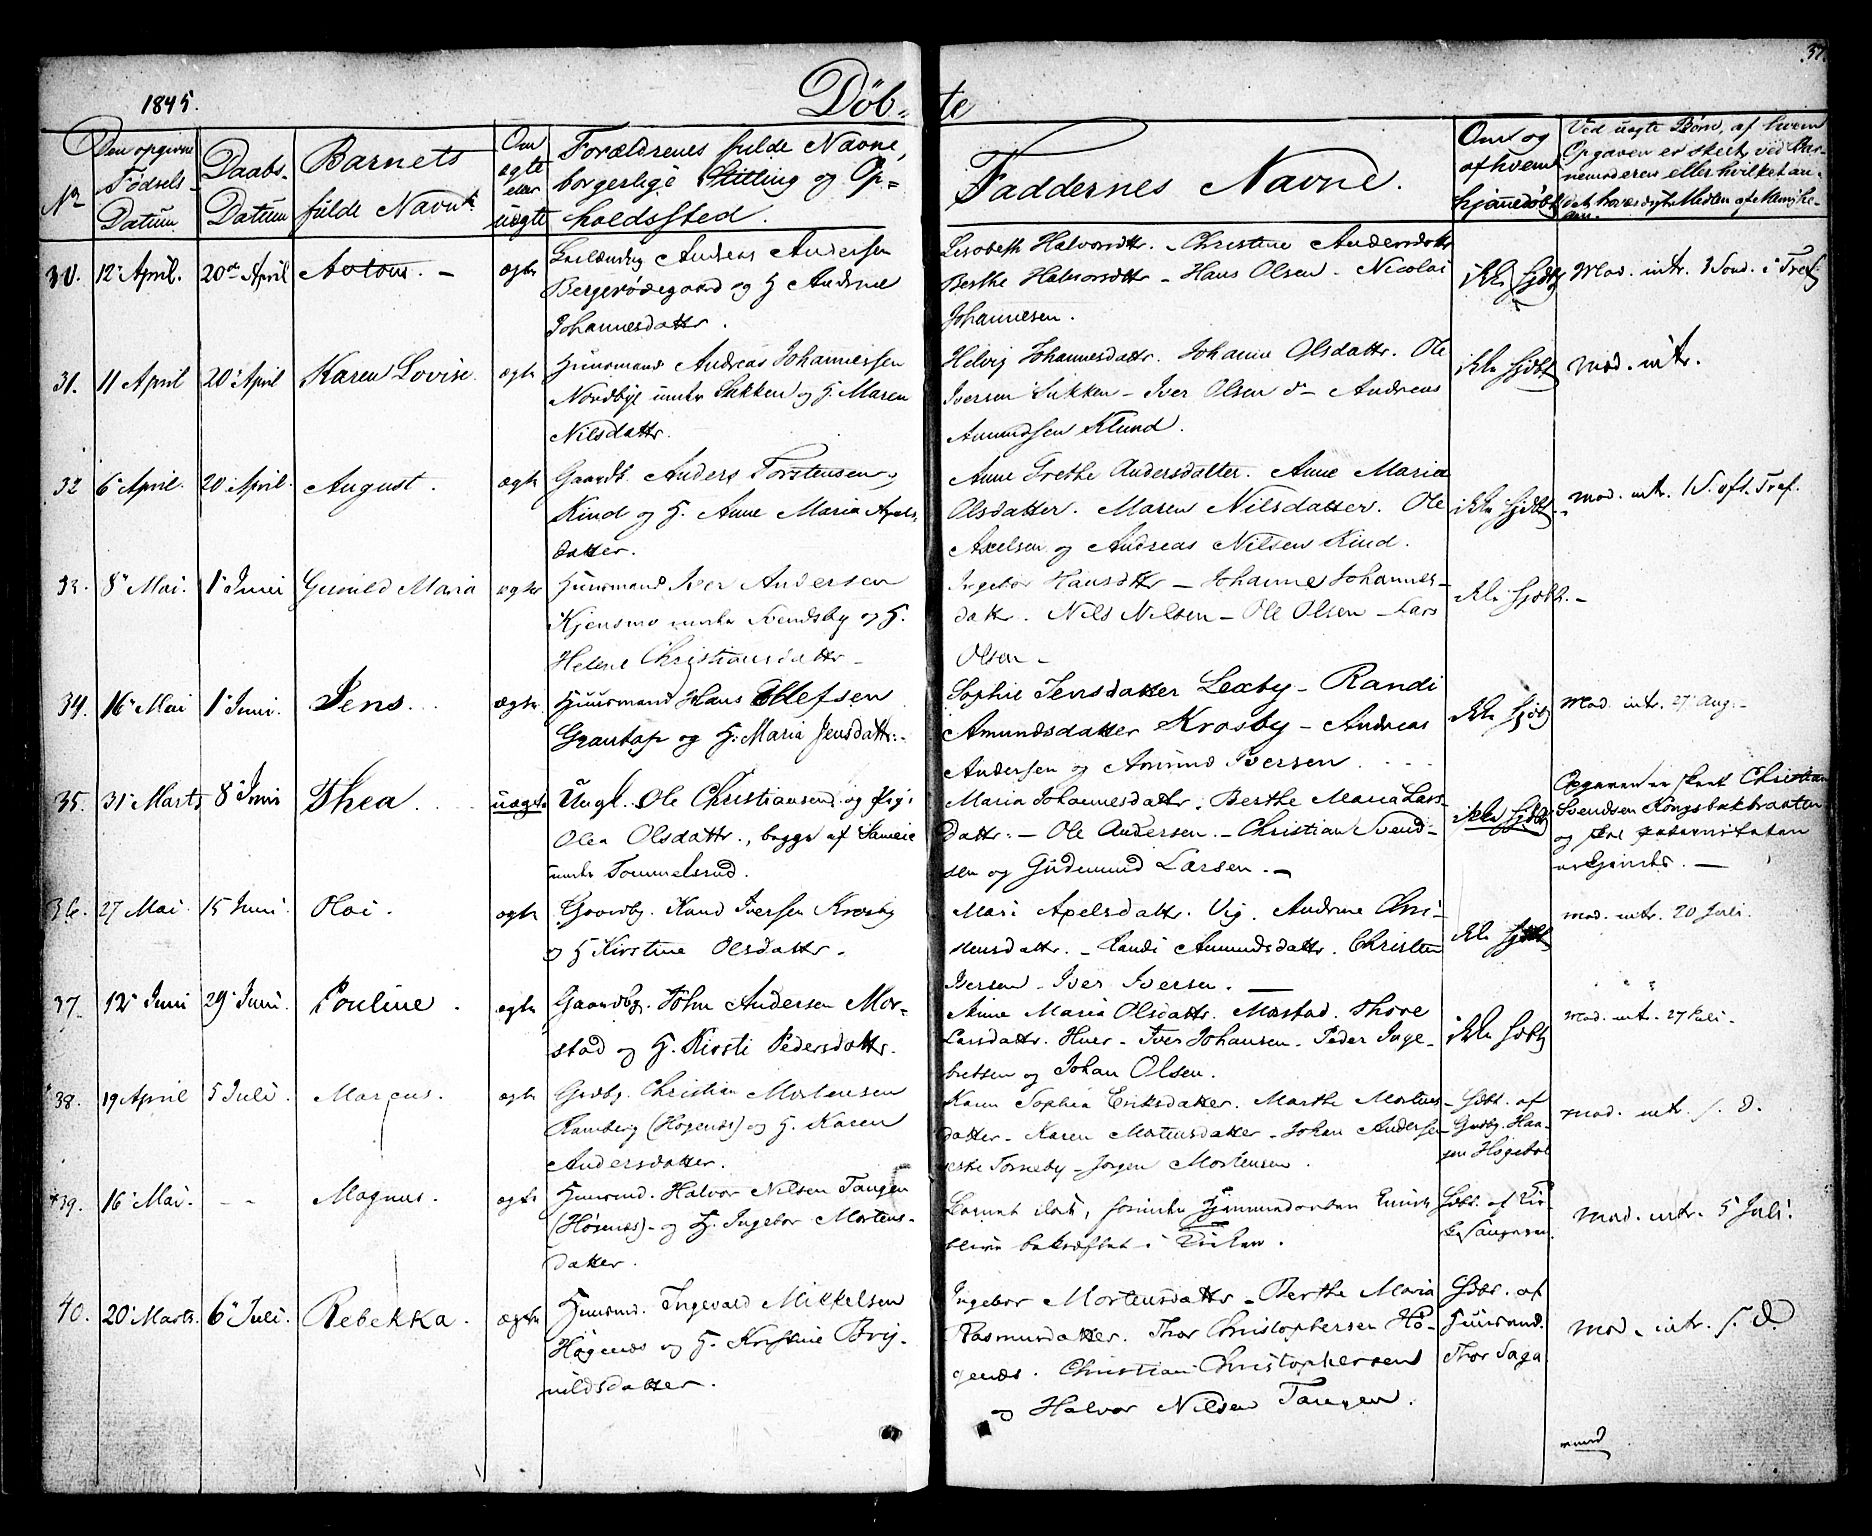 1845.
Döb-te
37.
No
Den opgivne Fødsels-Datum
Daabs-Datum
Barnets fulde Navn
Om ægte eller uægte
Forældrenes fulde Navne, borgerlige Stilling og Op=holdssted.
Faddernes Navne.
Om og af hvem hjemmedøbt
Ved uægte Børn, af hvem Opgaven er skeet, ved Bar-nemoderen eller hvilket an-
30. 12 April. 20de April Anton. - ægte Andreas Andersen
Bergerødegaard og H Andrine
Johannesdattr.
Lisabeth Halvorsdttr. - Christine Andersdattr
Berthe Halvorsdttr - Hans Olsen - Nicolai
Johannesen.
ikke hjdbt
Mod. intr. 3 Sond. i Tref.
31. 11 April 20 April Karen Lovise. ægte Huusmand Andreas Johannessen
Nordbye under Sukken og H. Maren
Nilsdattr.
Helvig Johannesdattr. Johanne Olsdattr. Ole
Iversen Sukken - Iver Olsen do - Andreas
Amundsen Klund.
ikke hjdbt
Mod. intr.
32 6 April. 20 April. August. ægte Gaardb. Anders Torstensen
Kind og H. Anne Maria Axels-
datter.
Anne Grethe Andersdatter. Anne Maria
Olsdatter. Maren Nilsdatter. Ole
Axelsen og Andreas Nilsen Kind.
ikke hjdbt. -
Mod. intr. 1 S. oft. Tref.
33. 8 Mai. 1 Juni Gunild Maria ægte Huusmand Iver Andersen
Kjensmo under Svendsby og H.
Helene Christiansdattr -
Ingebor Hansdttr - Johanne Johannes-
dattr. Nils Nilsen - Ole Olsen - Lars
Olsen -
ikke hjdbt. -
34. 16 Mai 1 Juni. Jens. ægte. Huusmand Hans Ellefsen
Grantop og H. Maria Jensdattr. -
Sophie Jensdatter Lexby - Randi
Amundsdatter Krosby - Andreas
Andersen og Amund Iversen
ikke hjdbt
Mod. intr. 27 Aug. -
35. 31 Marts 8 Juni Thea. uægte Ungk. Ole Christiansen og Pige
Olea Olsdattr., begge af Sameie
under Tommelsrud.
Maria Johannesdattr. Berthe Maria Lars-
dattr. - Ole Andersen. - Christian Svend-
sen og Gudmund Larsen. -
ikke hjdbt
Opgaven er skeet Christian
Svendsen Kongsbakbraaten
og
36. 27 Mai. 15 Juni. Olai. ægte Gaardbg. Knud Iversen Krosby
og H Kirstine Olsdattr.
Mari Axelsdattr. Vig. Andrine Chri-
stensdattr. - Randi Amundsdattr. Christen
Iversen - Iver Iversen. -
ikke hjdbt
Mod. intr. 20 Juli.
37. 12 Juni 29 Juni. Pouline. ægte Gaardbg. John Andersen Mor-
stad og H. Kirsti Pedersdattr.
Anne Maria Olsdattr. Morstad. Thore
Larsdattr. Huer - Iver Johansen. Peder Inge-
bretsen og Johan Olsen.
ikke hjdbt
Mod. intr. 27 Juli.
38. 19 April 5 Juli. Marcus. ægte Grdbg. Christian Mortensen
Ramberg (Høgenæs) og H. Karen
Andersdatter.
Karen Sophia Eriksdatter. Marthe Mortens
datter - Karen Mortensdatter - Johan Andersen
Torneby - Jørgen Mortensen.
Hjdbt. af
Grdbg. Han-
sen Høgebøl
Mod. intr. s. D.
39. 16 Mai. - - Magnus. ægte Huusmd. Halvor Nilsen Tangen
(Høgenæs) - og H. Ingebor Mortens-
datter.
Barnet døde, forinden Hjemmedaaben kunde
blive bekræftet i Kirken.
Hjdbt. af
Mod. intr. 5 Juli.
40. 20 Marts. 6 Juli. Rebekka. ægte Huusmd. Ingevald Mikkelsen
Høgenæs og H. Kristine Bryn-
nildsdatter.
Ingebor Mortensdattr. Berthe Maria
Rasmusdatter. Thor Christophersen Hø-
genæs. Christian Christophersen
og Halvor Nilsen Tangen.
Hjdbt. af
Huusmd.
Thor Saga
Mod. intr. s. D.